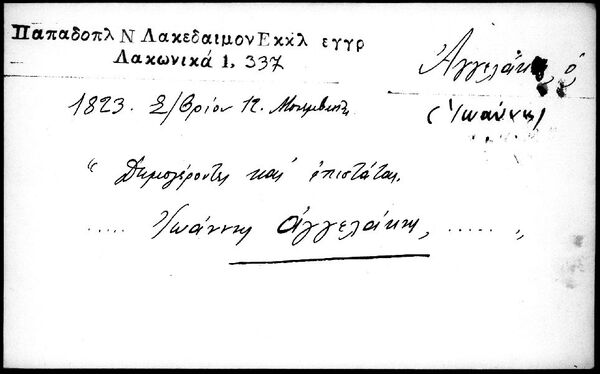 Παπαδοπλ Ν Λακεδαιμον Εκκλ εγγρ
Λακωνικά 1, 337
Ἀγγελάκης ὁ
(Ἰωάννης)
1823. Σ/βρίου 12. Μονεμβασία
“Δημογέροντες καὶ ἐπιστάτας.
..... Ἰωάννης ἀγγελάκης, ..... „